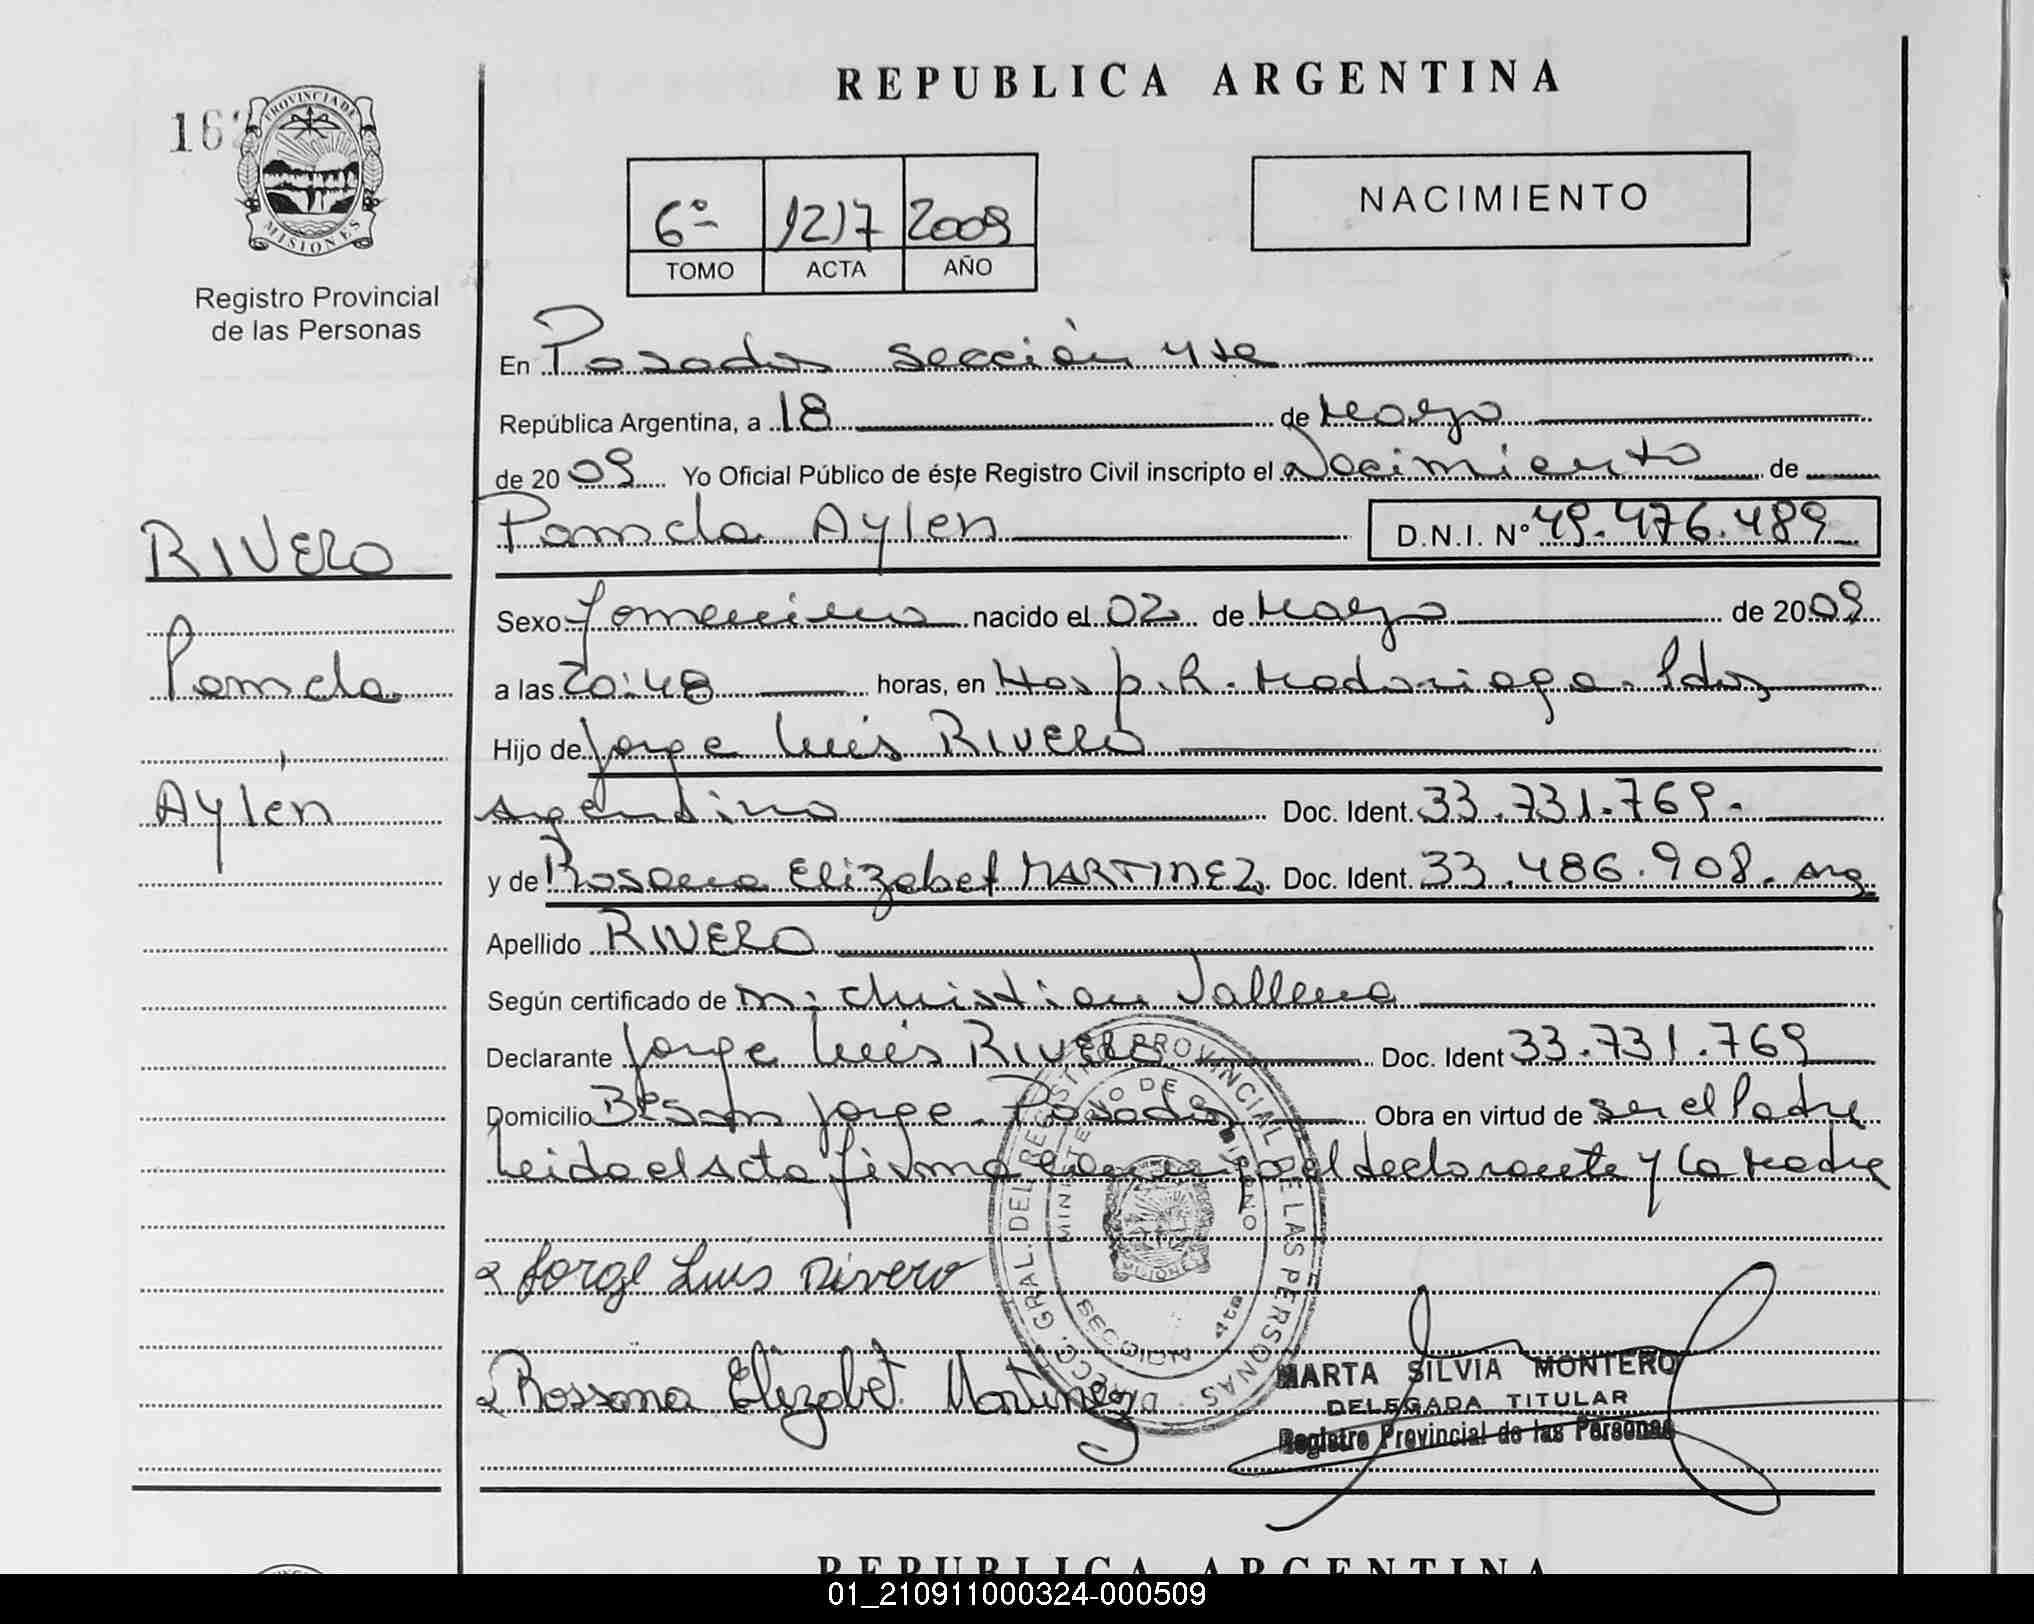 REPUBLICA ARGENTINA
16
PROVINCIA DE
MISIONES
Registro Provincial
de las Personas
6º 1217 2009
TOMO ACTA AÑO
NACIMIENTO
En Posadas sección 4ta
República Argentina, a 18 de Marzo
de 2009 Yo Oficial Público de éste Registro Civil inscripto el Nacimiento de
Pamela Aylen D.N.I. Nº 49.476.489
RIVERO
Pamela
Aylén
Sexo femenino nacido el 02 de Marzo de 2009
a las 20:48 horas, en Hosp. R. Madariaga. Pdas
Hijo de Jorge Luis RIVERO
argentino Doc. Ident. 33.731.769.
y de Rosana Elizabet MARTINEZ Doc. Ident. 33.486.908. arg.
Apellido RIVERO
Según certificado de m: christian
Declarante Jorge Luis RIVERO Doc. Ident 33.731.769
Domicilio Jorge. Posadas Obra en virtud de ser el Padre
Leida el Acta firma conmigo el declarante y la Madre
Jorge Luis Rivero
Rossana Elizabet. Martinez
DIRECC. GRAL. DEL REGISTRO PROVINCIAL DE LAS PERSONAS
MINISTERIO DE GOBIERNO
MISIONES
SECCION 4ta
MARTA SILVIA MONTERO
DELEGADA TITULAR
Registro Provincial de las Personas
REPUBLICA ARGENTINA
01_210911000324-000509